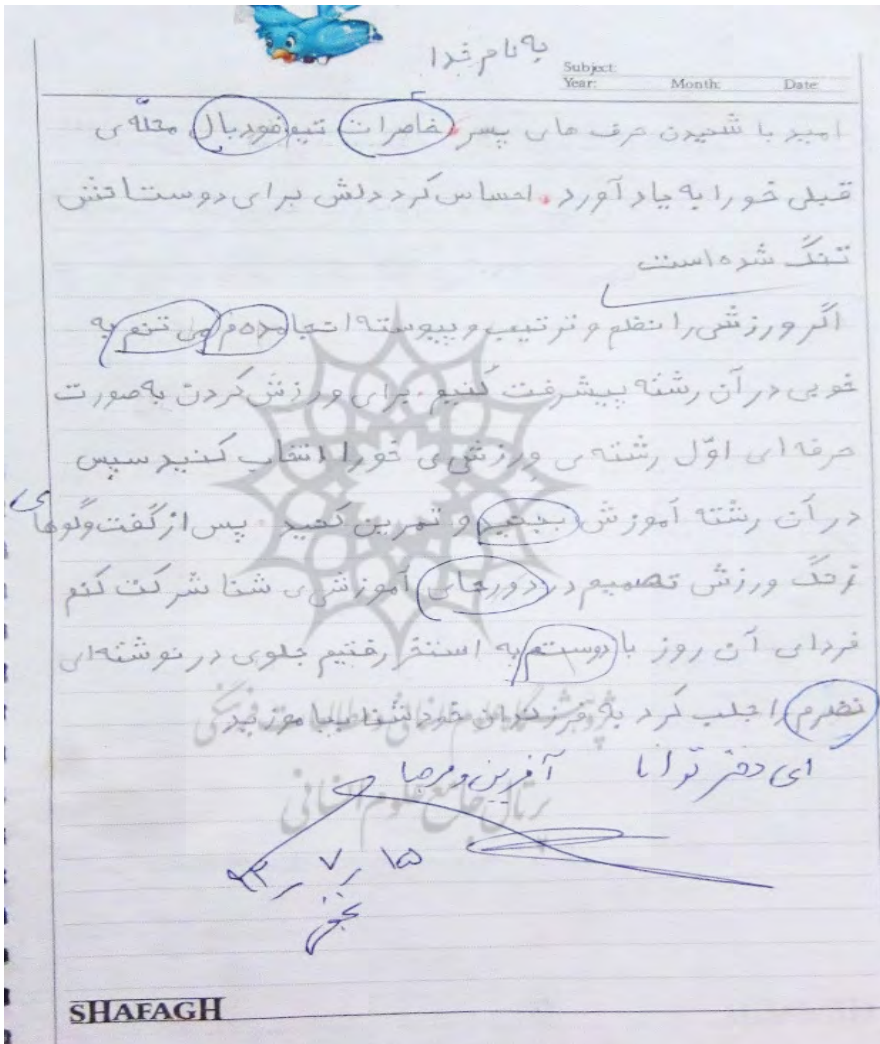 به نام خدا
Subject:
Year: Month: Date:
امید با شنیدن حرف های پسر، خاصرات تیم فودبال محلّه ی
قبلی خو را به یاد آورد. احساس کرد دلش برای دوستانش
تنگ شده است
اگر ورزشی را نظم و ترتیب و پیوسته انجا مدهم می تنم به
خوبی در آن رشته پیشرفت کنیم. برای ورزش کردن به صورت
حرفه ای اوّل رشته ی ورزشی ی خو را انتخاب کنید سپس
در آن رشته آموزش ببنید و تمرین کنید. پس از گفت و گوهای
زنگ ورزش تصمیم در دورهای آموزشی ی شنا شرکت کنم
فردای آن روز با دوستم به استخر رفتیم جلوی در نوشته ای
نضرم را جلب کرد به فرزندان خود شنا بیاموزید
ای دختر توانا آفرین و مرحبا
۱۵ ر ۷ ر ۹۳
پژوهشگاه علوم انسانی و مطالعات فرهنگی
پرتال جامع علوم انسانی
SHAFAGH